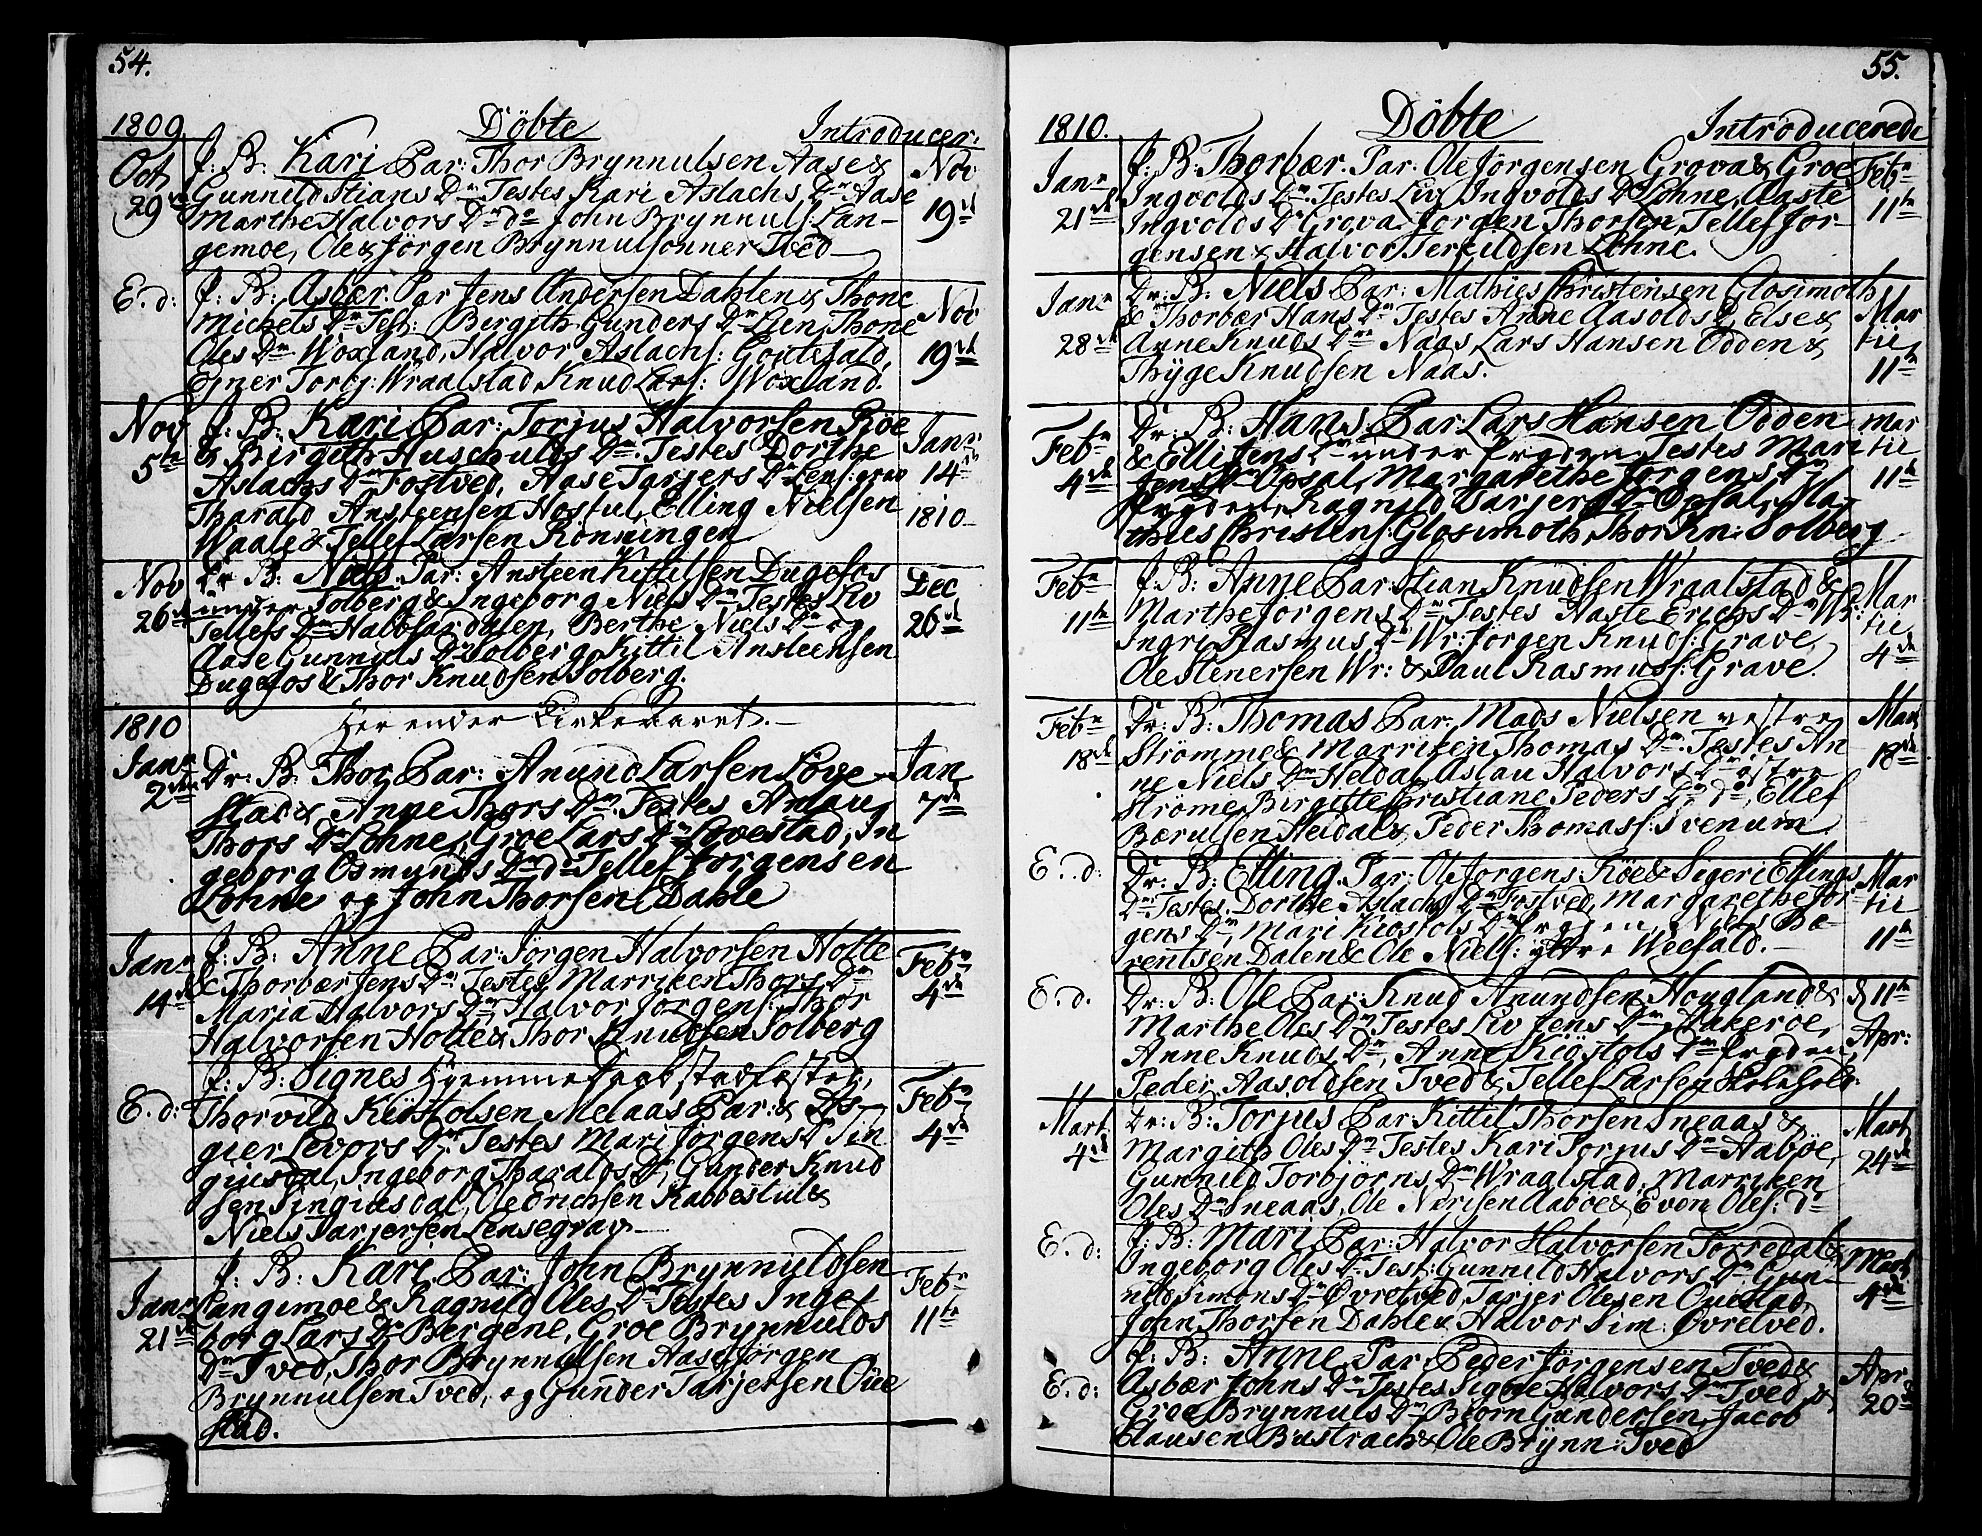 54.
1809 Döbte Introducer:
Oct 29de J: B: Kari Par: Thor Brynnulsen Aase & Nov 19de
Gunnild Stians Dr Testes Kari Aslachs Dr Aase
Marthe Halvors Dr do John Brynnuls: Lan-
gemoe, Ole & Jörgen Brynnulsönner Tved
E. d: J: B: Asbær. Par Jens Andersen Dahlen & Thone Nov 19de
Michels Dr Test: Bergith Gunders Dr Lien, Thone
Oles Dr Woxland, Halvor Aslachs:
Ejner Torbj: Wraalstad Knud Lars: Woxland.
Nov 5te J: B: Kari Par: Torjus Halvorsen Röe Jan: 14de 1810
& Birgith Huschulds Dr: Testes Dorthe
Aslachs Dr Fostved, Aase Tarjers Dr Lens: grav
Tharald Ansteensen Hostul, Elling Nielsen
Waale & Tellef Larsen Rönningen
Nov 26de Dr B: Niels Par: Ansteen Kittilsen Dugefos Dec 26de
under Solberg & Ingeborg Niels Dr Testes Liv
Tellefs Dr Halvfardalen, Berthe Niels Dr og
Aase Gunnuls Dr Solberg, Kittil Ansteensen
Dugefos & Thor Knudsen Solberg.
1810 Her ender Kirkeaaret.
Jan: 2den Dr: B: Thor Par: Anund Larsen Löve- Jan 7de
stad & Anne Thors Dr Testes Anlaug
Thors Dr Lohne, Groe Lars Dr Lövestad, In
geborg Osmunds Dr do Tellef Jörgensen
Lohne og John Thorsen Dahle
Jan: 14de J: B: Anne Par: Jörgen Halvorsen Holte Feb: 4de
& Thorbær Jens Dr Testes Marriken Thors Dr
Maria Halvors Dr Halvor Jörgens: Thor
Halvorsen Holte & Thor Knudsen Solberg
E. d: J: B: Signes Hjemmedaab stadfested, Feb: 4de
Thorvild Kiöstolsen Melaas Par: & As-
gier Levors Dr Testes Mari Jörgens Dr Sin
giusdal, Ingeborg Tharalds Dr, Gunder Knud
sen Singiusdal, Ole Erichsen Kabbestul &
Niels Tarjersen Lensegrav
Jan: 21de J: B: Kari Par: John Brynnuldsen Feb: 11te
Langemoe & Ragnild Oles Dr Testes Inge
borg Lars Dr Bergene, Groe Brynnulds
Dr Tved, Thor Brynnulsen Aase Jörgen
Brynnulsen Tved, og Gunder Tarjersen Oue
stad.
55.
1810. Döbte Introducerede
Jan: 21de J: B: Thorbær. Par: Ole Jörgensen Grova & Groe Feb: 11te
Ingvolds Dr Testes Liv Ingvolds Dr Lohne, Aaste
Ingvolds Dr Grova, Jörgen Thorsen, Tellef Jör-
gensen & Halvor Terkildsen Lohne.
Jan: 28de Dr: B: Niels Par: Mathies Christensen Glosimoth Martii 11te
& Thorbær Hans Dr Testes Anne Aasolds Dr Else &
Anne Knuds Dr Naas Lars Hansen Odden &
Thyge Knudsen Naas.
Feb: 4de Dr: B: Hans Par Lars Hansen Odden martii 11te
& Elli Jens Dr under Frydem Testes Mari
Jens Dr Opsal, Margarethe Jörgens Dr
Frydem, Ragnild Tarjers Dr Opsal, Ma-
thies Christens: Glosimoth, Thor Kn: Solberg
Feb: 11te J: B: Anne Par Stian Knudsen Wraalstad & Martii 4de
Marthe Jörgens Dr Testes Aaste Erichs Dr Wr:
Ingri Rasmus Dr Wr: Jörgen Knuds: Grave
Ole Stenersen Wr: & Paul Rasmuss: Grave.
Feb: 18de Dr: B: Thomas Par: Mads Nielsen vestre Mart 18de
Strömme & Marriken Thomas Dr Testes An-
ne Niels Dr Heldal, Aslau Halvors Dr östre
Ströme, Birgitte Christiane Peders Dr do, Ellef
Bærulsen Heldal & Peder Thomass: Svenum
E. d: Dr: B: Elling. Par: Ole Jörgens Röe & Sigeri Ellings Martii 11te
Dr Testes Dorthe Aslachs Dr Fostved, Margarethe Jör
gens Dr, Mari Kiöstols Dr Frydem, Niels Be-
rentsen Dalen & Ole Niels: yttre Weefald.
E. d. Dr: B: Ole Par: Knud Anundsen Hougland & d 11te Apr:
Marthe Oles Dr Testes Liv Jens Dr Bakeroe,
Anne Knuds Dr, Anne Kiöstols Dr Frydem,
Peder Aasoldsen Tved & Tellef Larsen
Mart 4de Dr: B: Torjus Par Kittil Thorsen Sneaas & Mart 24de
Margith Oles Dr Testes Kari Torjus Dr Aaböe,
Gunnild Torbjörns Dr Wraalstad, Marriken
Oles Dr Sneaas, Ole Nerisen Aaböe & Even Oles: do
E. d: J: B: Mari Par: Halvor Halvorsen Torredal & Mart 4de
Ingeborg Oles Dr Test: Gunnild Halvors Dr Gun-
nild Simons Dr Övretved, Tarjer Olesen Ouestad,
John Thorsen Dahle & Halvor Sim: Övretved.
E. d: J: B: Anne Par: Peder Jörgensen Tved & Apr: 20de
Asbær Johns Dr Testes Signe Halvors Dr Tved &
Groe Brynnuls Dr Biörn Gundersen, Jacob
Clausen Bustrach & Ole Brynn: Tved